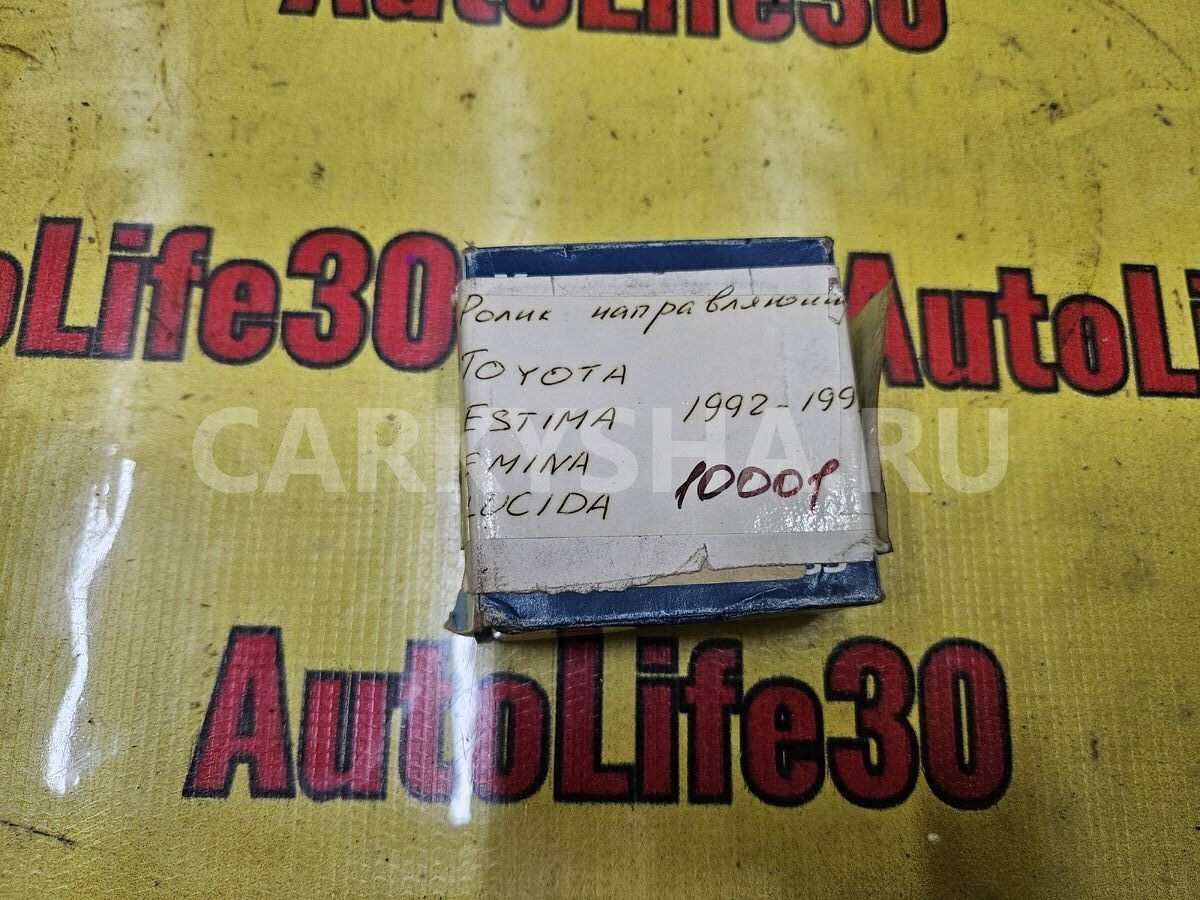 AutoLife30
oLife30
AutoL
Ролик направляющи
TOYOTA
ESTIMA 1992-199
EMINA
LUCIDA
CARKYSHA.RU
AutoLife30